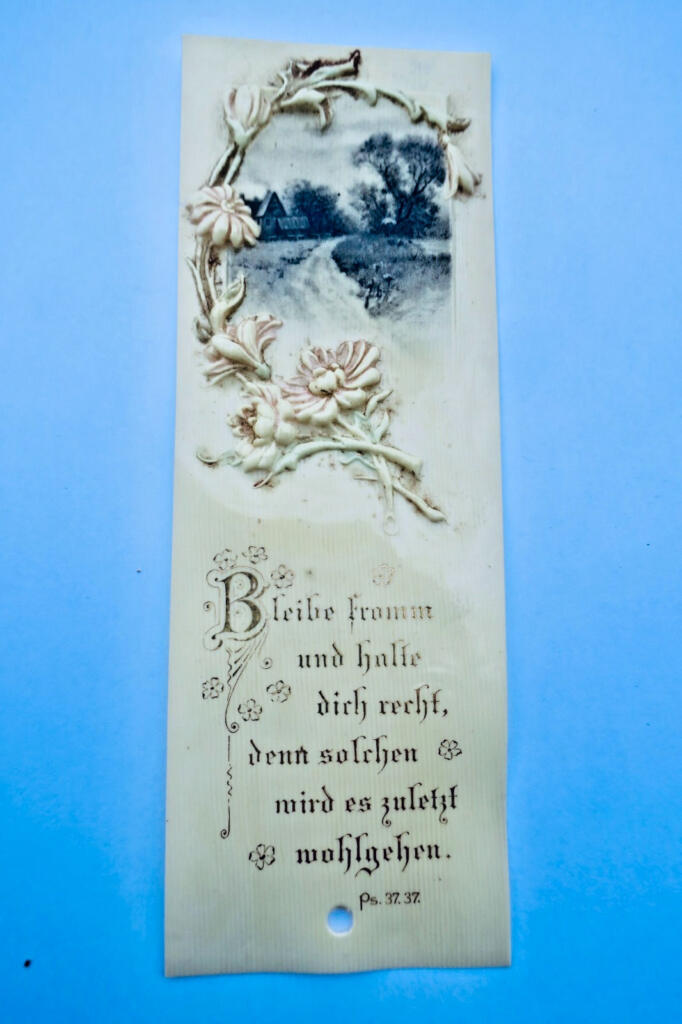 Bleibe fromm
und halte
dich recht,
denn solchen
wird es zuletzt
wohlgehen.
Ps. 37. 37.